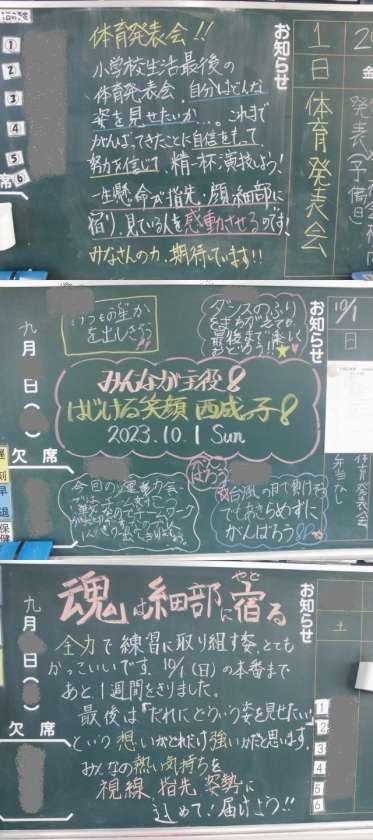 お知らせ
1
日
体育発表会
金
発表会(予備日)
体育発表会!!
小学校生活最後の
体育発表会、自分はどんな
姿を見せたいか…。これまで
がんばってきたことに自信をもって、
努力を信じて、精一杯演技しよう!
一生懸命が指先・顔・細部に
宿り、見ている人を感動させるのです!
みなさんの力、期待しています!!
①
②
③
④
⑤
⑥
席
お知らせ
10/1
日
体育発表会
弁当なし
ダンスのふり
をまちがえても
最後まで楽しく
おどろう!!
いつもの笑か
を出しきろう
みんなが主役!
はじける笑顔 西成っ子!
2023.10.1 Sun
がんばろう
台風の目で負け
てもあきらめずに
がんばろう
今回の運動会
九月
日
(
)
欠席
遅刻
早退
保健
お知らせ
土
1
2
3
4
5
6
魂は細部に宿る
やど
全力で練習に取り組む姿、とても
かっこいいです。10/1(日)の本番まで
あと1週間をきりました。
最後は「だれにどういう姿を見せたい」
という想いがどれだけ強いかだと思います。
みんなの熱い気持ちを
視線 指先 姿勢に
込めて!届けよう!!
九月
日
(
)
欠席